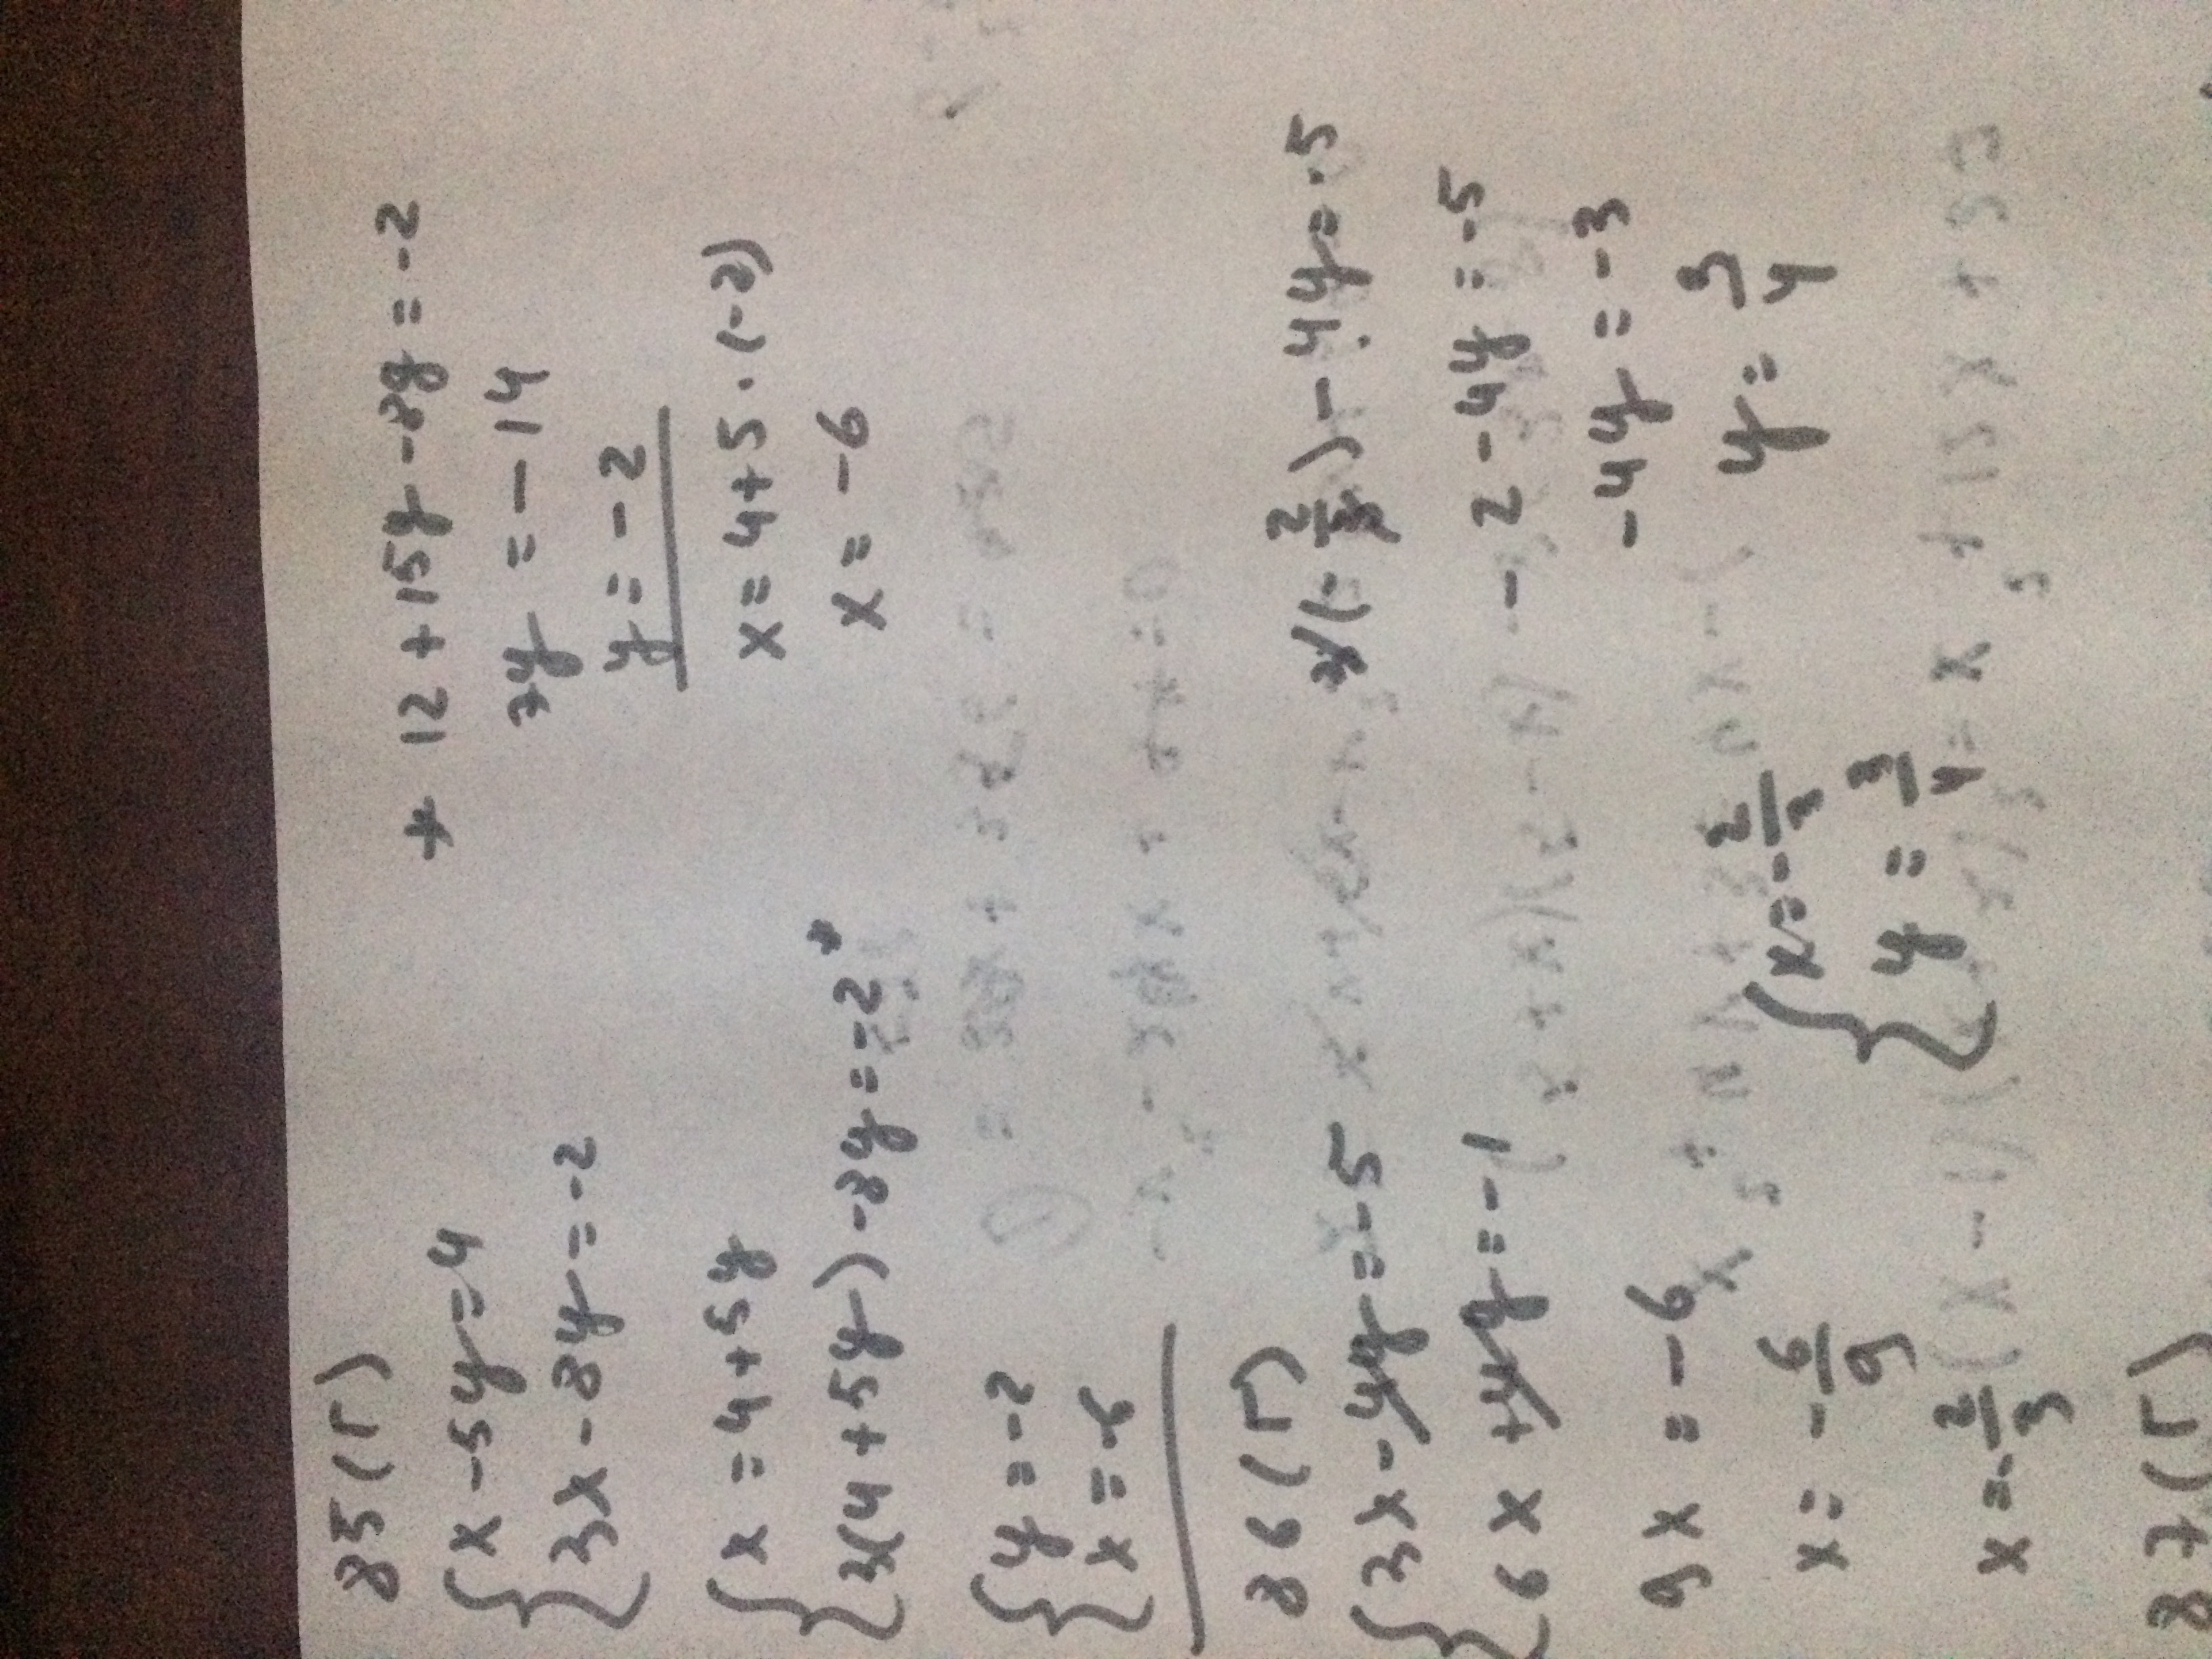 85(г)
{ x - 5y = 4
{ 3x - 8y = -2
{ x = 4 + 5y
{ 3(4 + 5y) - 8y = -2 *
{ y = -2
{ x = -6
* 12 + 15y - 8y = -2
7y = -14
y = -2
x = 4 + 5 · (-2)
x = -6
86(г)
{ 3x - 4y = -5
{ 6x + 4y = -1
9x = -6
x = - 6/9
x = - 2/3
3(- 2/3) - 4y = -5
- 2 - 4y = -5
- 4y = -3
y = 3/4
{ x = - 2/3
{ y = 3/4
87(г)